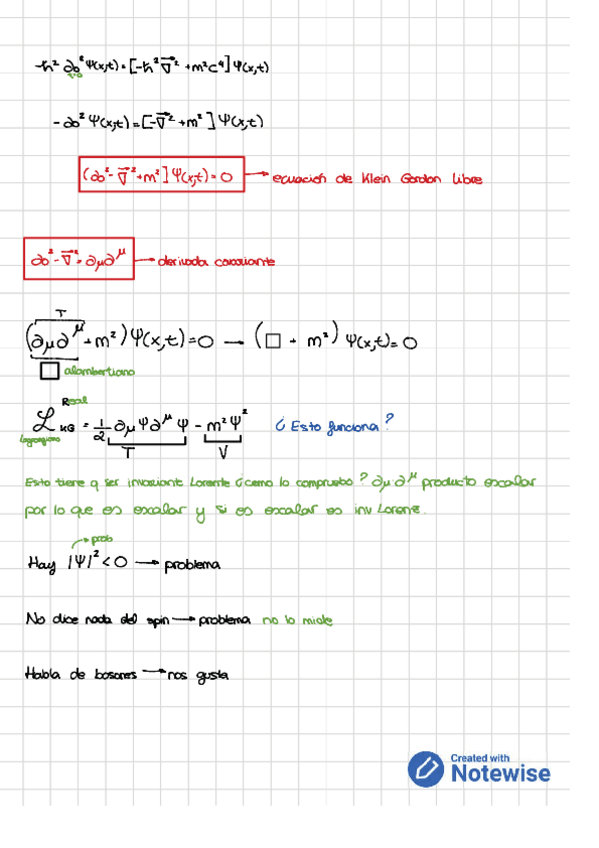 -ħ² ∂₀² Ψ(x,t) = [-ħ² ∇⃗² + m²c⁴] Ψ(x,t)
- ∂₀² Ψ(x,t) = [-∇⃗² + m² ] Ψ(x,t)
(∂₀² - ∇⃗² + m² ] Ψ(x,t) = 0 → ecuación de Klein Gordon Libre
∂₀² - ∇⃗² = ∂μ∂^μ → derivada covariante
T
(∂μ∂^μ + m²) Ψ(x,t) = 0 → (□ + m²) Ψ(x,t) = 0
□ alambertiano
Real
ℒ_KG = 1/2 ∂μ Ψ ∂^μ Ψ - m² Ψ² ¿ Esto funciona ?
Lagrangiano T V
Esto tiene q ser invariante Lorentz ¿como lo compruebo? ∂μ ∂^μ producto escalar
por lo que es escalar y si es escalar es inv Lorentz.
prob
Hay |Ψ|² < 0 → problema
No dice nada del spin → problema no lo mide
Habla de bosones → nos gusta
Created with
Notewise